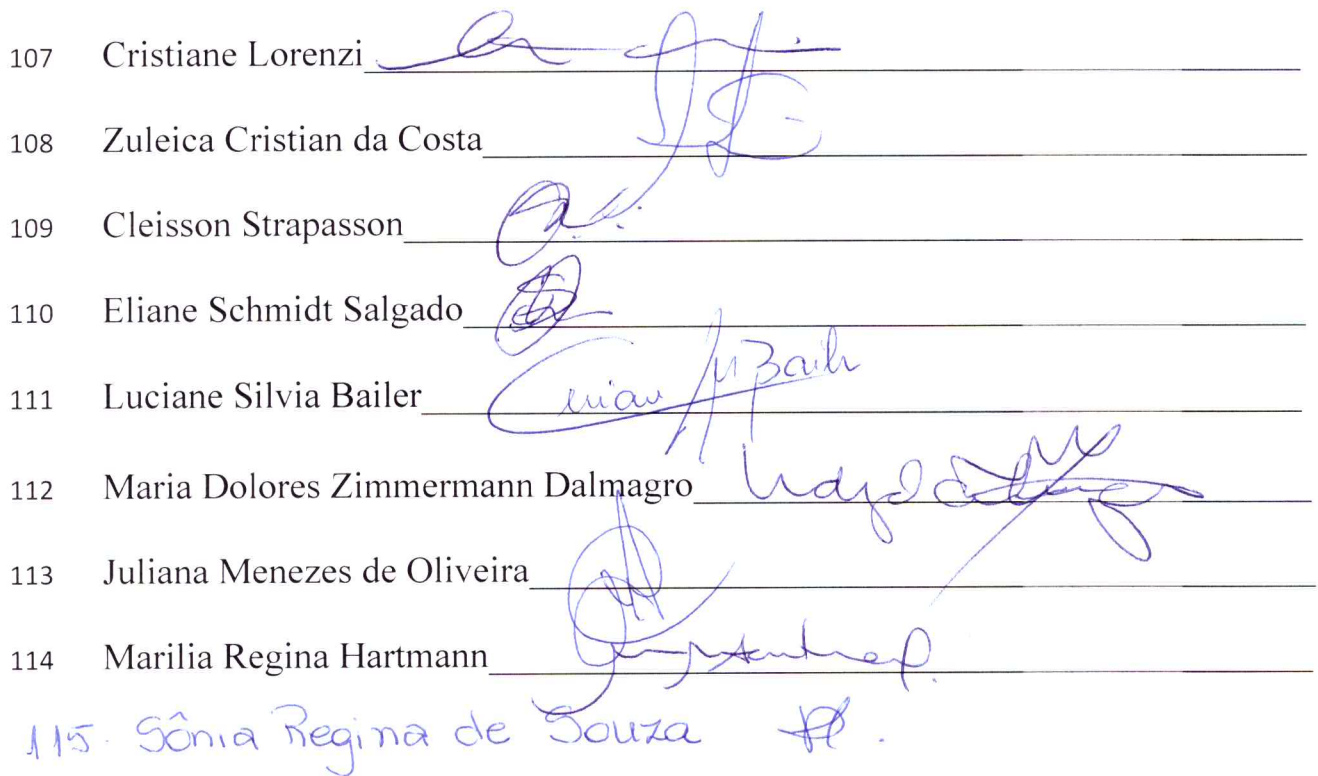 107 Cristiane Lorenzi
108 Zuleica Cristian da Costa
109 Cleisson Strapasson
110 Eliane Schmidt Salgado
111 Luciane Silvia Bailer
112 Maria Dolores Zimmermann Dalmagro
113 Juliana Menezes de Oliveira
114 Marilia Regina Hartmann
115. Sônia Regina de Souza